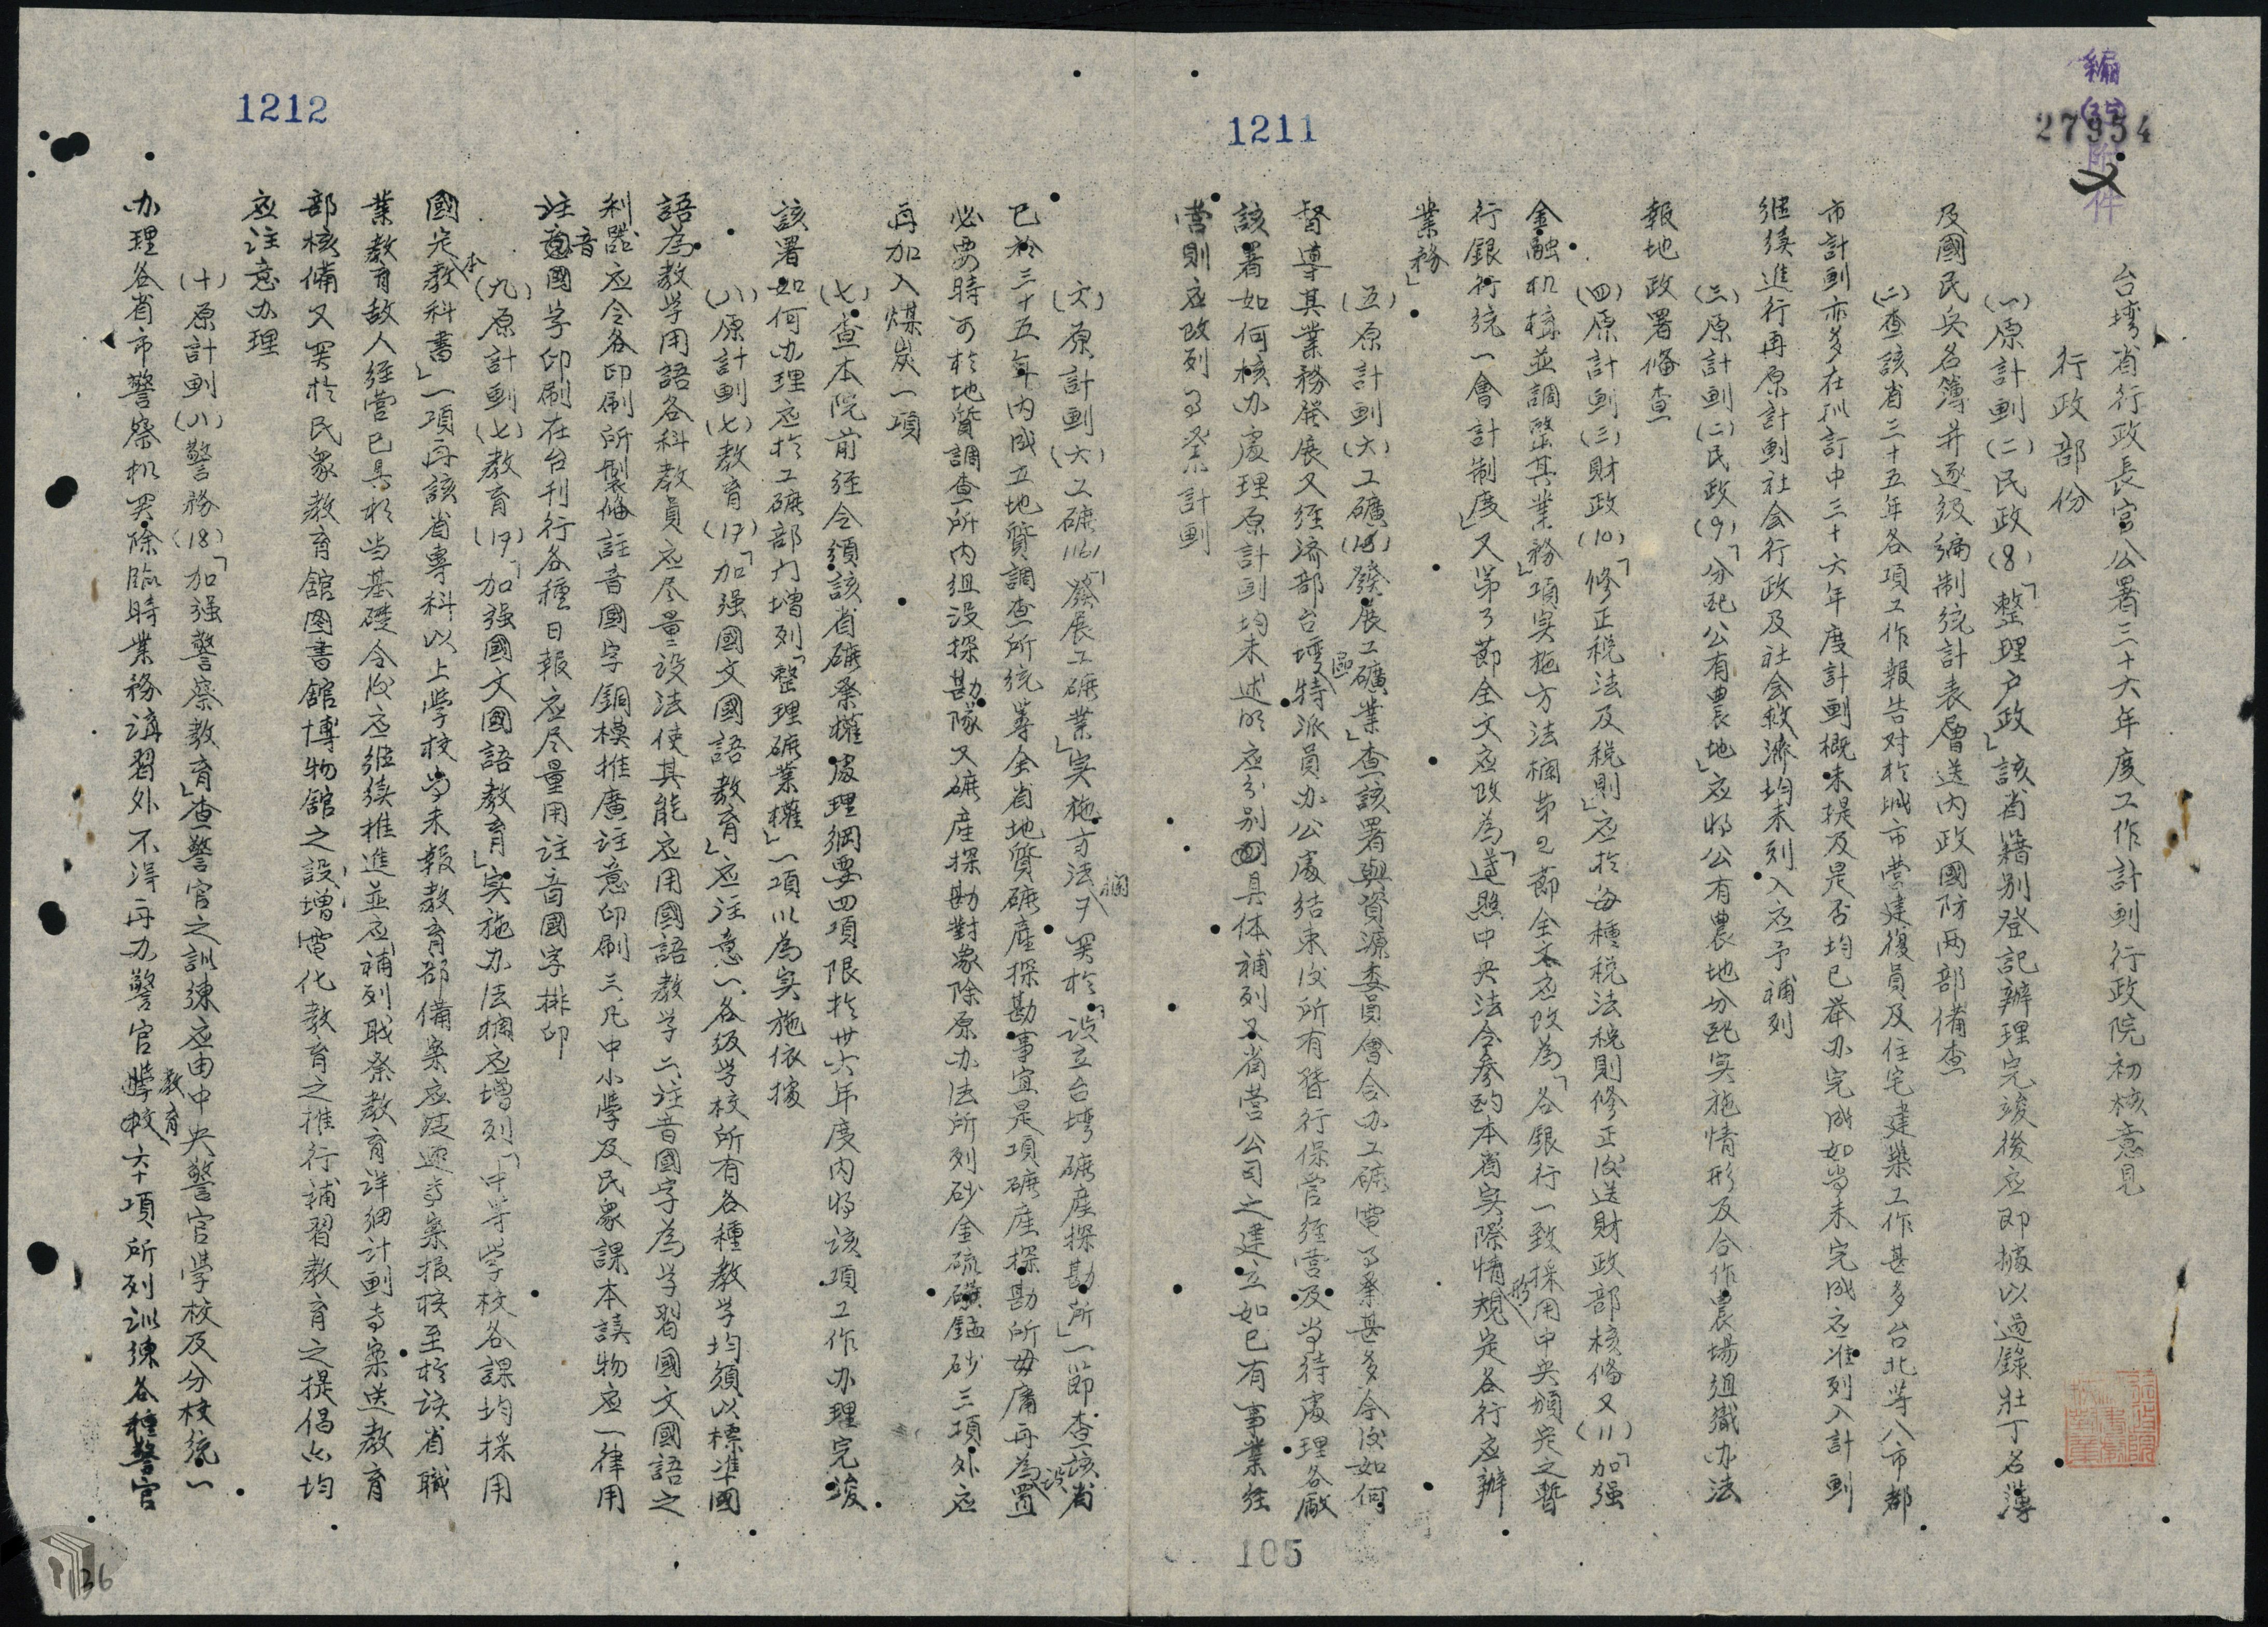 編(35)附件
27954
1211
台灣省行政長官公署三十六年度工作計劃行政院初核意見
行政部份
(一)原計劃(二)民政(8)「整理户政」該省籍别登記辦理完竣後应即據以過錄壯丁名簿
及國民兵名簿并逐级編制統計表層送内政國防两部備查
(二)查該省三十五年各項工作報告对於城市营建復員及住宅建築工作甚多台北等八市都
市計劃亦多在拟訂中三十六年度計劃概未提及是否均已举办完成如尚未完成应准列入計劃
继续進行再原計劃社会行政及社会救濟均未列入应予補列
(三)原計劃(二)民政(9)「分配公有農地」应將公有農地分配实施情形及合作農場组織办法
報地政署俻查
(四)原計劃(三)財政(10)「修正税法及税則」应於每種税法税則修正後送財政部核俻又(11)「加强
金融机構並調整其業務」項实施方法欄第2節全文应改為「各银行一致採用中央頒定之暫
行銀行統一會計制度」又第3節全文应改為「遵照中央法令參酌本省实際情形規定各行应辦
業務」
(五)原計劃(六)工礦(15)「發展工礦業」查該署與資源委員會合办工礦電事業甚多今後如何
督導其業務發展又經済部台灣區特派員办公處结束後所有暂行保管經营及尚待處理各廠
該署如何核办處理原計劃均未述明应分别具体補列又省营公司之建立如已有事業经
营則应改列事業計劃
105
1212
(六)原計劃(六)工礦(16)「發展工礦業」实施方法欄关於「设立台灣礦產探勘所」一節查該省
已於三十五年内成立地質調查所統筹全省地質礦產探勘事宜是項礦產探勘所毋庸再為設置
必要時可於地質調查所内组设探勘隊又礦產探勘對象除原办法所列砂金硫磺錳砂三項外应
再加入煤炭一項
(七)查本院前经令頒該省礦業權處理綱要四項限於卅六年度内將该項工作办理完竣
該署如何办理应於工礦部门增列「整理礦業權」一項以為实施依據
(八)原計劃(七)教育(17)「加强國文國語教育」应注意一、各级学校所有各種教学均須以標準國
語為教学用語各科教員应尽量設法使其能应用國語教学二、注音國字為学習國文國語之
利器应令各印刷所製俻註音國字銅模推廣注音印刷三、凡中小學及民眾課本讀物应一律用
注音國字印刷在台刊行各種日報应尽量用注音國字排印
(九)原計劃(七)教育(17)「加强國文國語教育」实施办法欄应增列「中等学校各課均採用
國定本教科書」一項再該省專科以上學校尚未報教育部備案应從速專案报核至於该省職
業教育敌人经营已具相当基礎今後应继续推進並应補列职業教育详细計劃專案送教育
部核備又关於民眾教育舘图書舘博物舘之設增電化教育之推行補習教育之提倡亦均
应注意办理
(十)原計劃(八)警務(18)「加强警察教育」查警官之訓練应由中央警官學校及分校統一
办理各省市警察机关除臨時業務講習外不得再办警官教育本項所列訓練各種警官
36